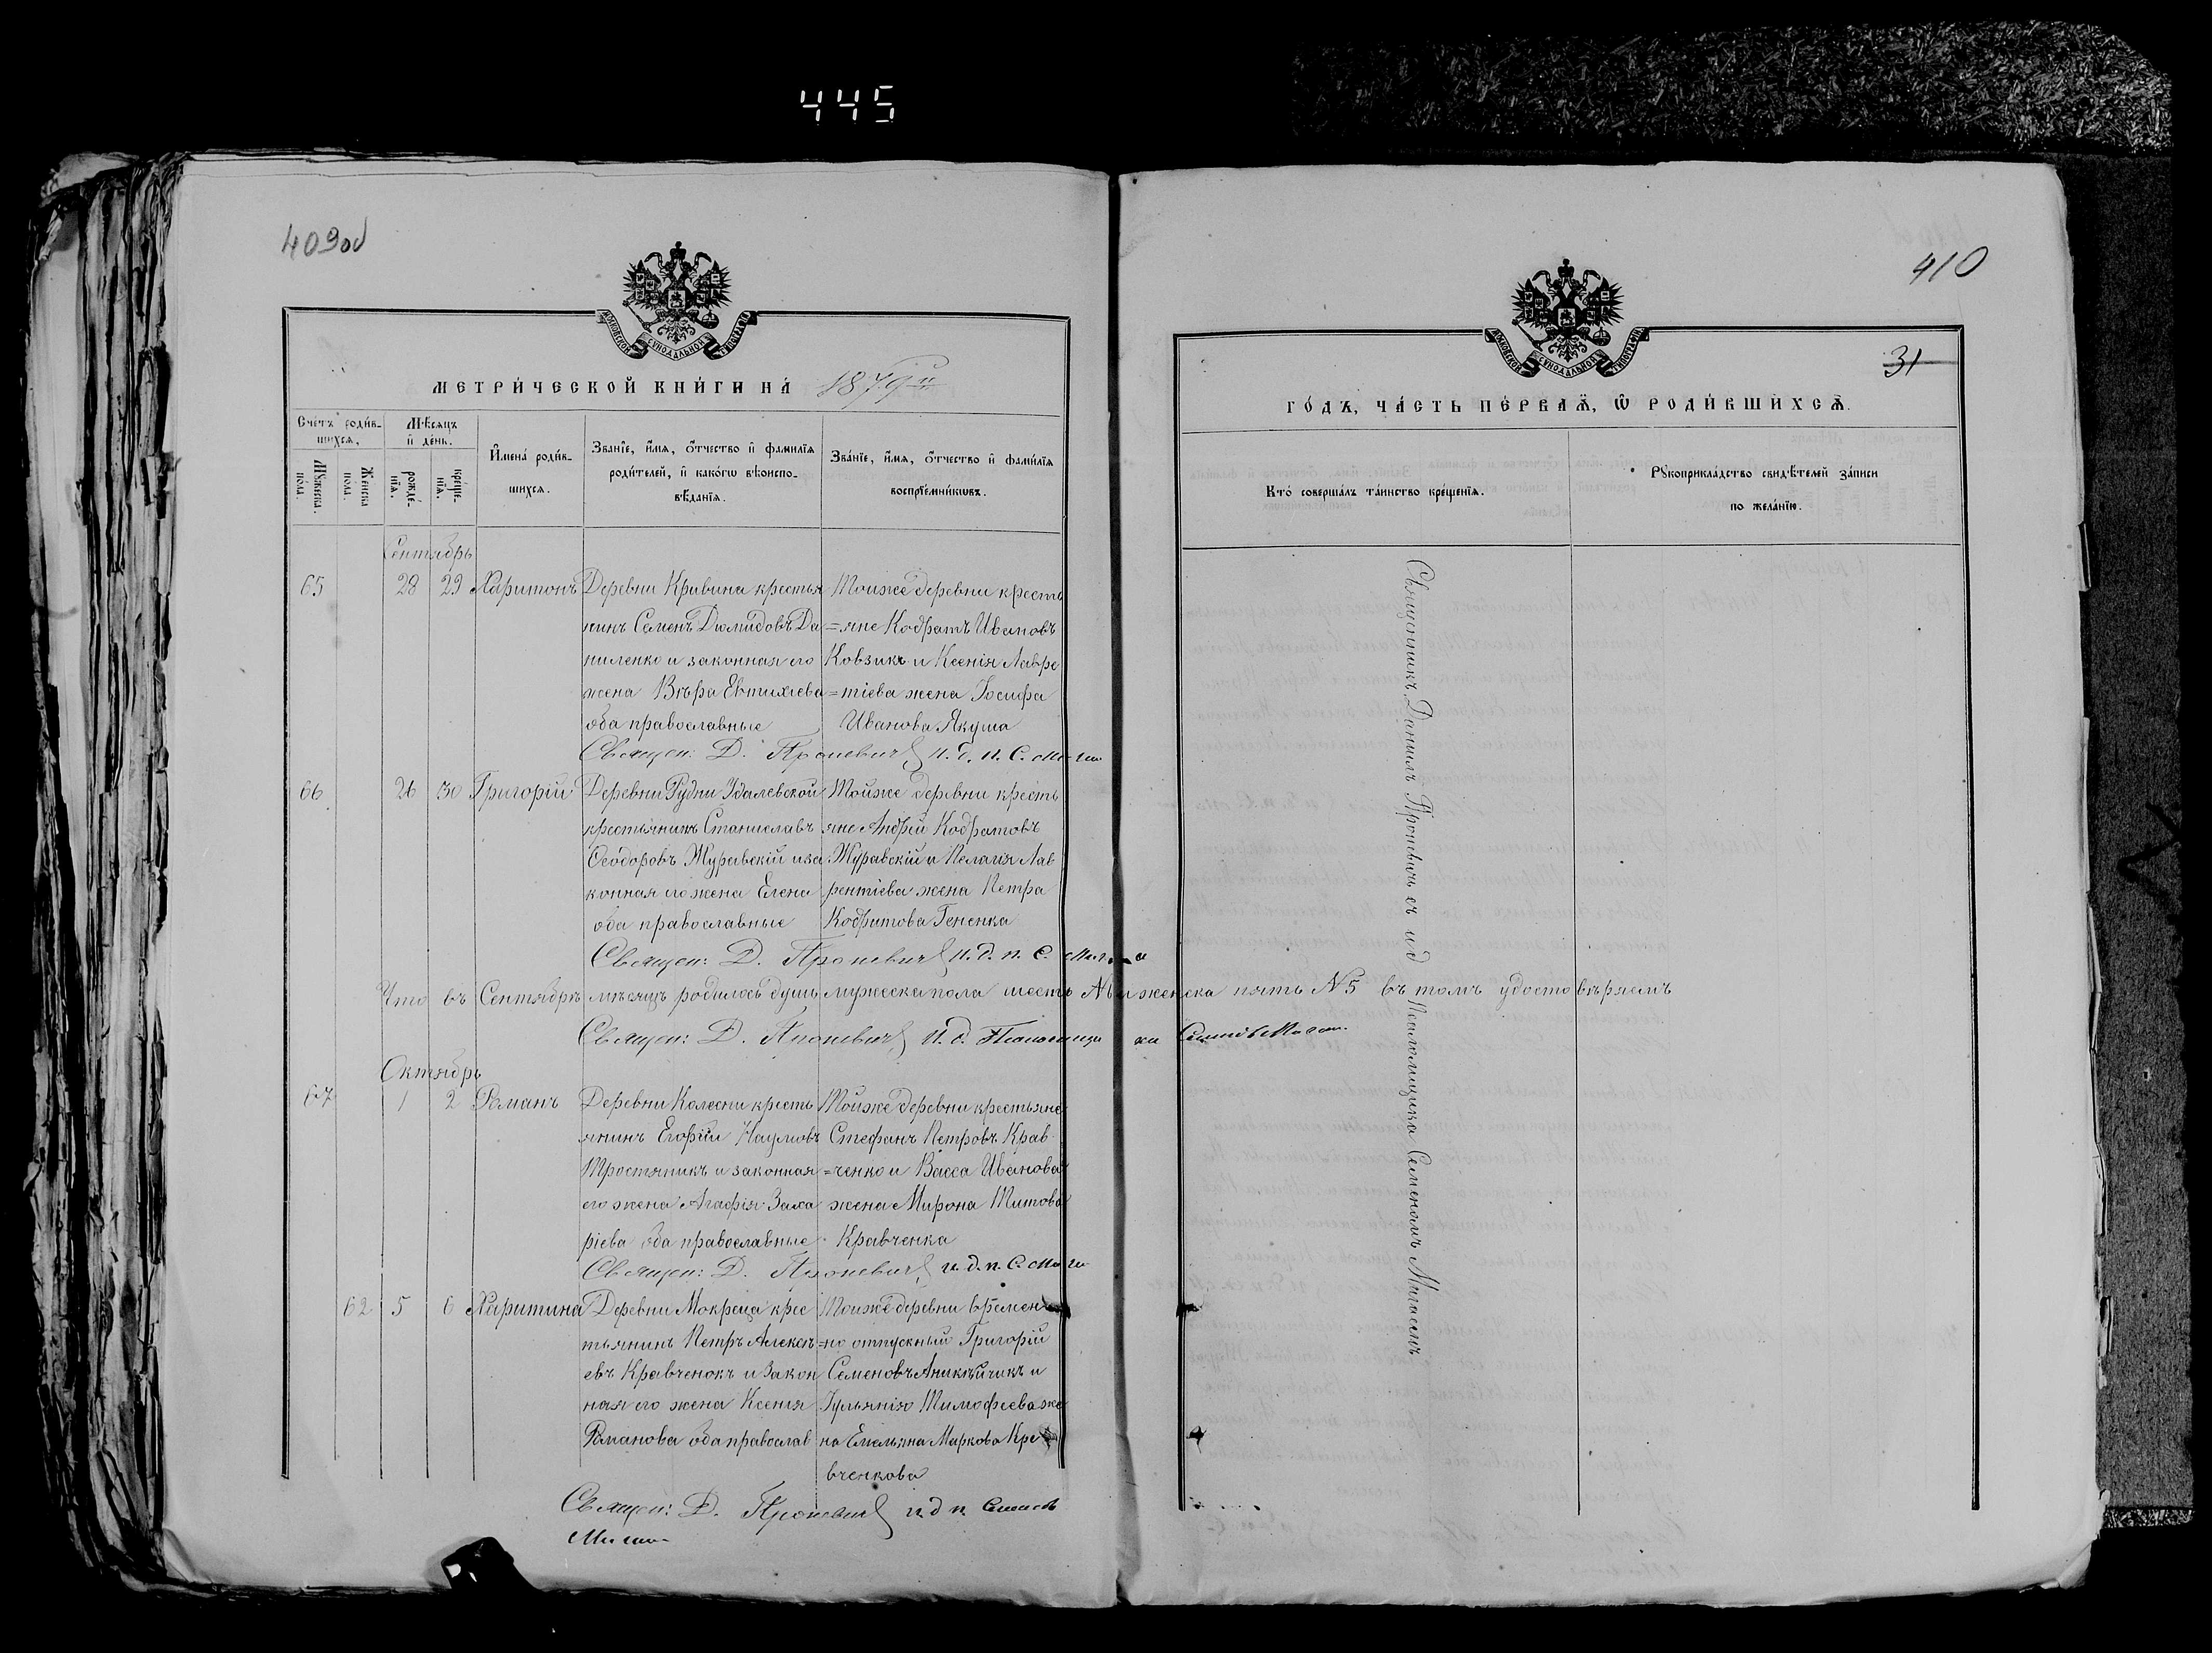 445
409об
МОСКОВСКОЙ СѴНОДАЛЬНОЙ ТИПОГРАФІИ
МЕТРИ́ЧЕСКОЙ КНИ́ГИ НА́ 1879й
Сче́тъ роди́в-
шихся,
Мѣсяцъ
и҆ де́нь.
Мꙋ́жеска
по́ла.
Же́нска
по́ла.
рожде́-
нїѧ.
креще́-
нїѧ.
И҆мена̀ роди́в-
шихсѧ.
Зва́нїе, и҆́мѧ, ѻ҆́тчество и҆ фами́лїѧ
роди́телей, и҆ како́гѡ вѣроиспо-
вѣ́данїѧ.
Зва́нїе, и҆́мѧ, ѻ҆́тчество и҆ фами́лїѧ
воспрїе́мникѡвъ.
Сентябрь
65 28 29 Харитонъ Деревни Кривина крестья
нинъ Семенъ Діомидовъ Да
ниленко и законная его
жена Вѣра Евтихіева
оба православные
Тойже деревни кресть
=яне Кодратъ Ивановъ
Ковзикъ и Ксенія Лавре
=тіева жена Іосифа
Иванова Якуша
Священ: Д. Проневичъ И. д. п. С.
66 26 30 Григорій Деревни Рудни Удалевской
крестьянинъ Станиславъ
Ѳеодоровъ Журавскій и за
конная его жена Елена
оба православные
Тойже деревни кресть
яне Андрей Кодратовъ
Журавскій и Пелагія Лав
рентіева жена Петра
Кодратова Гененка
Священ: Д. Проневичъ И. д. п. С.
Что въ Сентябрѣ мѣсяцѣ родилось душъ мужеска пола шесть и женска пять №5 въ томъ удостовѣряемъ
Священ: Д. Проневичъ И. д. Псаломщика
Октябрь
67 1 2 Романъ Деревни Колесни кресть
янинъ Егорій Наумовъ
Тростяникъ и законная
его жена Агафія Заха
ріева оба православные
Тойже деревни крестьяне
Стефанъ Петровъ Крав
=ченко и Васса Иванова
жена Мирона Титова
Кравченка
Священ: Д. Проневичъ и. д. п. С.
62 5 6 Харитина Деревни Мокреца крес
тьянинъ Петръ Алексѣ
евъ Кравченокъ и закон
ная его жена Ксенія
Романова оба православ
Тойже деревни времен
=но отпускный Григорій
Семеновъ Аникѣйчикъ и
Іуліанія Тимофеева же
на Емельяна Маркова Кра
вченкова
Священ: Д. Проневичъ и д п
410
31
МОСКОВСКОЙ СѴНОДАЛЬНОЙ ТИПОГРАФІИ
ГО́ДЪ, ЧА́СТЬ ПЕ́РВАѦ, Ѽ РОДИ́ВШИХСѦ.
Кто̀ соверша́лъ та́инство креще́нїѧ.
Рꙋкоприкла́дство свидѣ́телей за́писи
по жела́нїю.
Священникъ Даніилъ Проневичъ съ и д Псаломщика Семеномъ